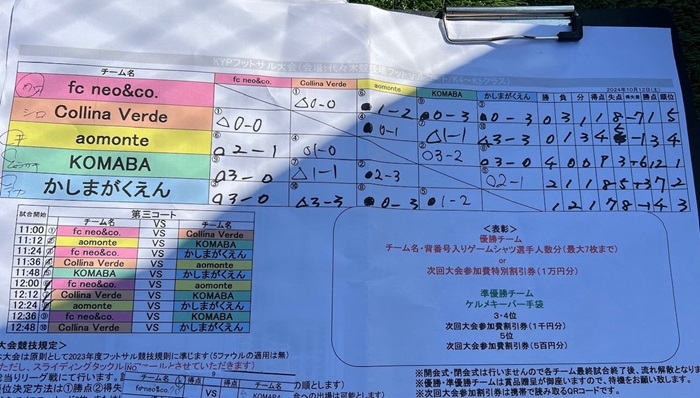 チーム名 fc neo&co. Collina Verde aomonte KOMABA かしまがくえん 勝 負 分 得点 失点 得失差 勝点 順位
2024年10月12日(土)
fc neo&co. △0-0 ●1-2 ●0-3 ●0-3 0 3 1 1 8 -7 1 5
Collina Verde △0-0 ●0-1 △1-1 △3-3 0 1 3 4 5 -1 3 4
aomonte ○2-1 ○1-0 ○3-2 ○3-0 4 0 0 9 3 +6 12 1
KOMABA ○3-0 △1-1 ●2-3 ○2-1 2 1 1 8 5 +3 7 2
かしまがくえん ○3-0 △3-3 ●0-3 ●1-2 1 2 1 7 8 -1 4 3
試合開始 第三コート
チーム名 VS チーム名
11:00 ① fc neo&co. VS Collina Verde
11:12 ② aomonte VS KOMABA
11:24 ③ fc neo&co. VS かしまがくえん
11:36 ④ Collina Verde VS aomonte
11:48 ⑤ KOMABA VS かしまがくえん
12:00 ⑥ fc neo&co. VS aomonte
12:12 ⑦ Collina Verde VS KOMABA
12:24 ⑧ aomonte VS かしまがくえん
12:36 ⑨ fc neo&co. VS KOMABA
12:48 ⑩ Collina Verde VS かしまがくえん
<表彰>
優勝チーム
チーム名・背番号入りゲームシャツ選手人数分(最大7枚まで)
or
次回大会参加費特別割引券(1万円分)
準優勝チーム
ケルメキーパー手袋
3・4位
次回大会参加費割引券(1千円分)
5位
次回大会参加費割引券(5百円分)
大会競技規定>
本大会は原則として2023年度フットサル競技規則に準じます(5ファウルの適用は無)
ただし、スライディングタックル
当りリーグ戦にて行います。
位決定方法は①勝点②得失
力順とします)
会への出場は可能とします)
※開会式・閉会式は行いませんので各チーム最終試合終了後、流れ解散となりま
※優勝・準優勝チームは賞品贈呈が御座いますので、待機をお願い致します。
※次回大会参加費割引券は携帯で読み取るQRコードです。